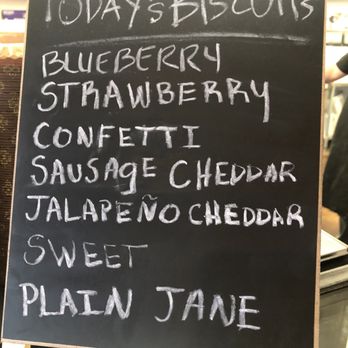 TODAY'S BISCUITS
BLUEBERRY
STRAWBERRY
CONFETTI
SAUSAGE CHEDDAR
JALAPEÑO CHEDDAR
SWEET
PLAIN JANE